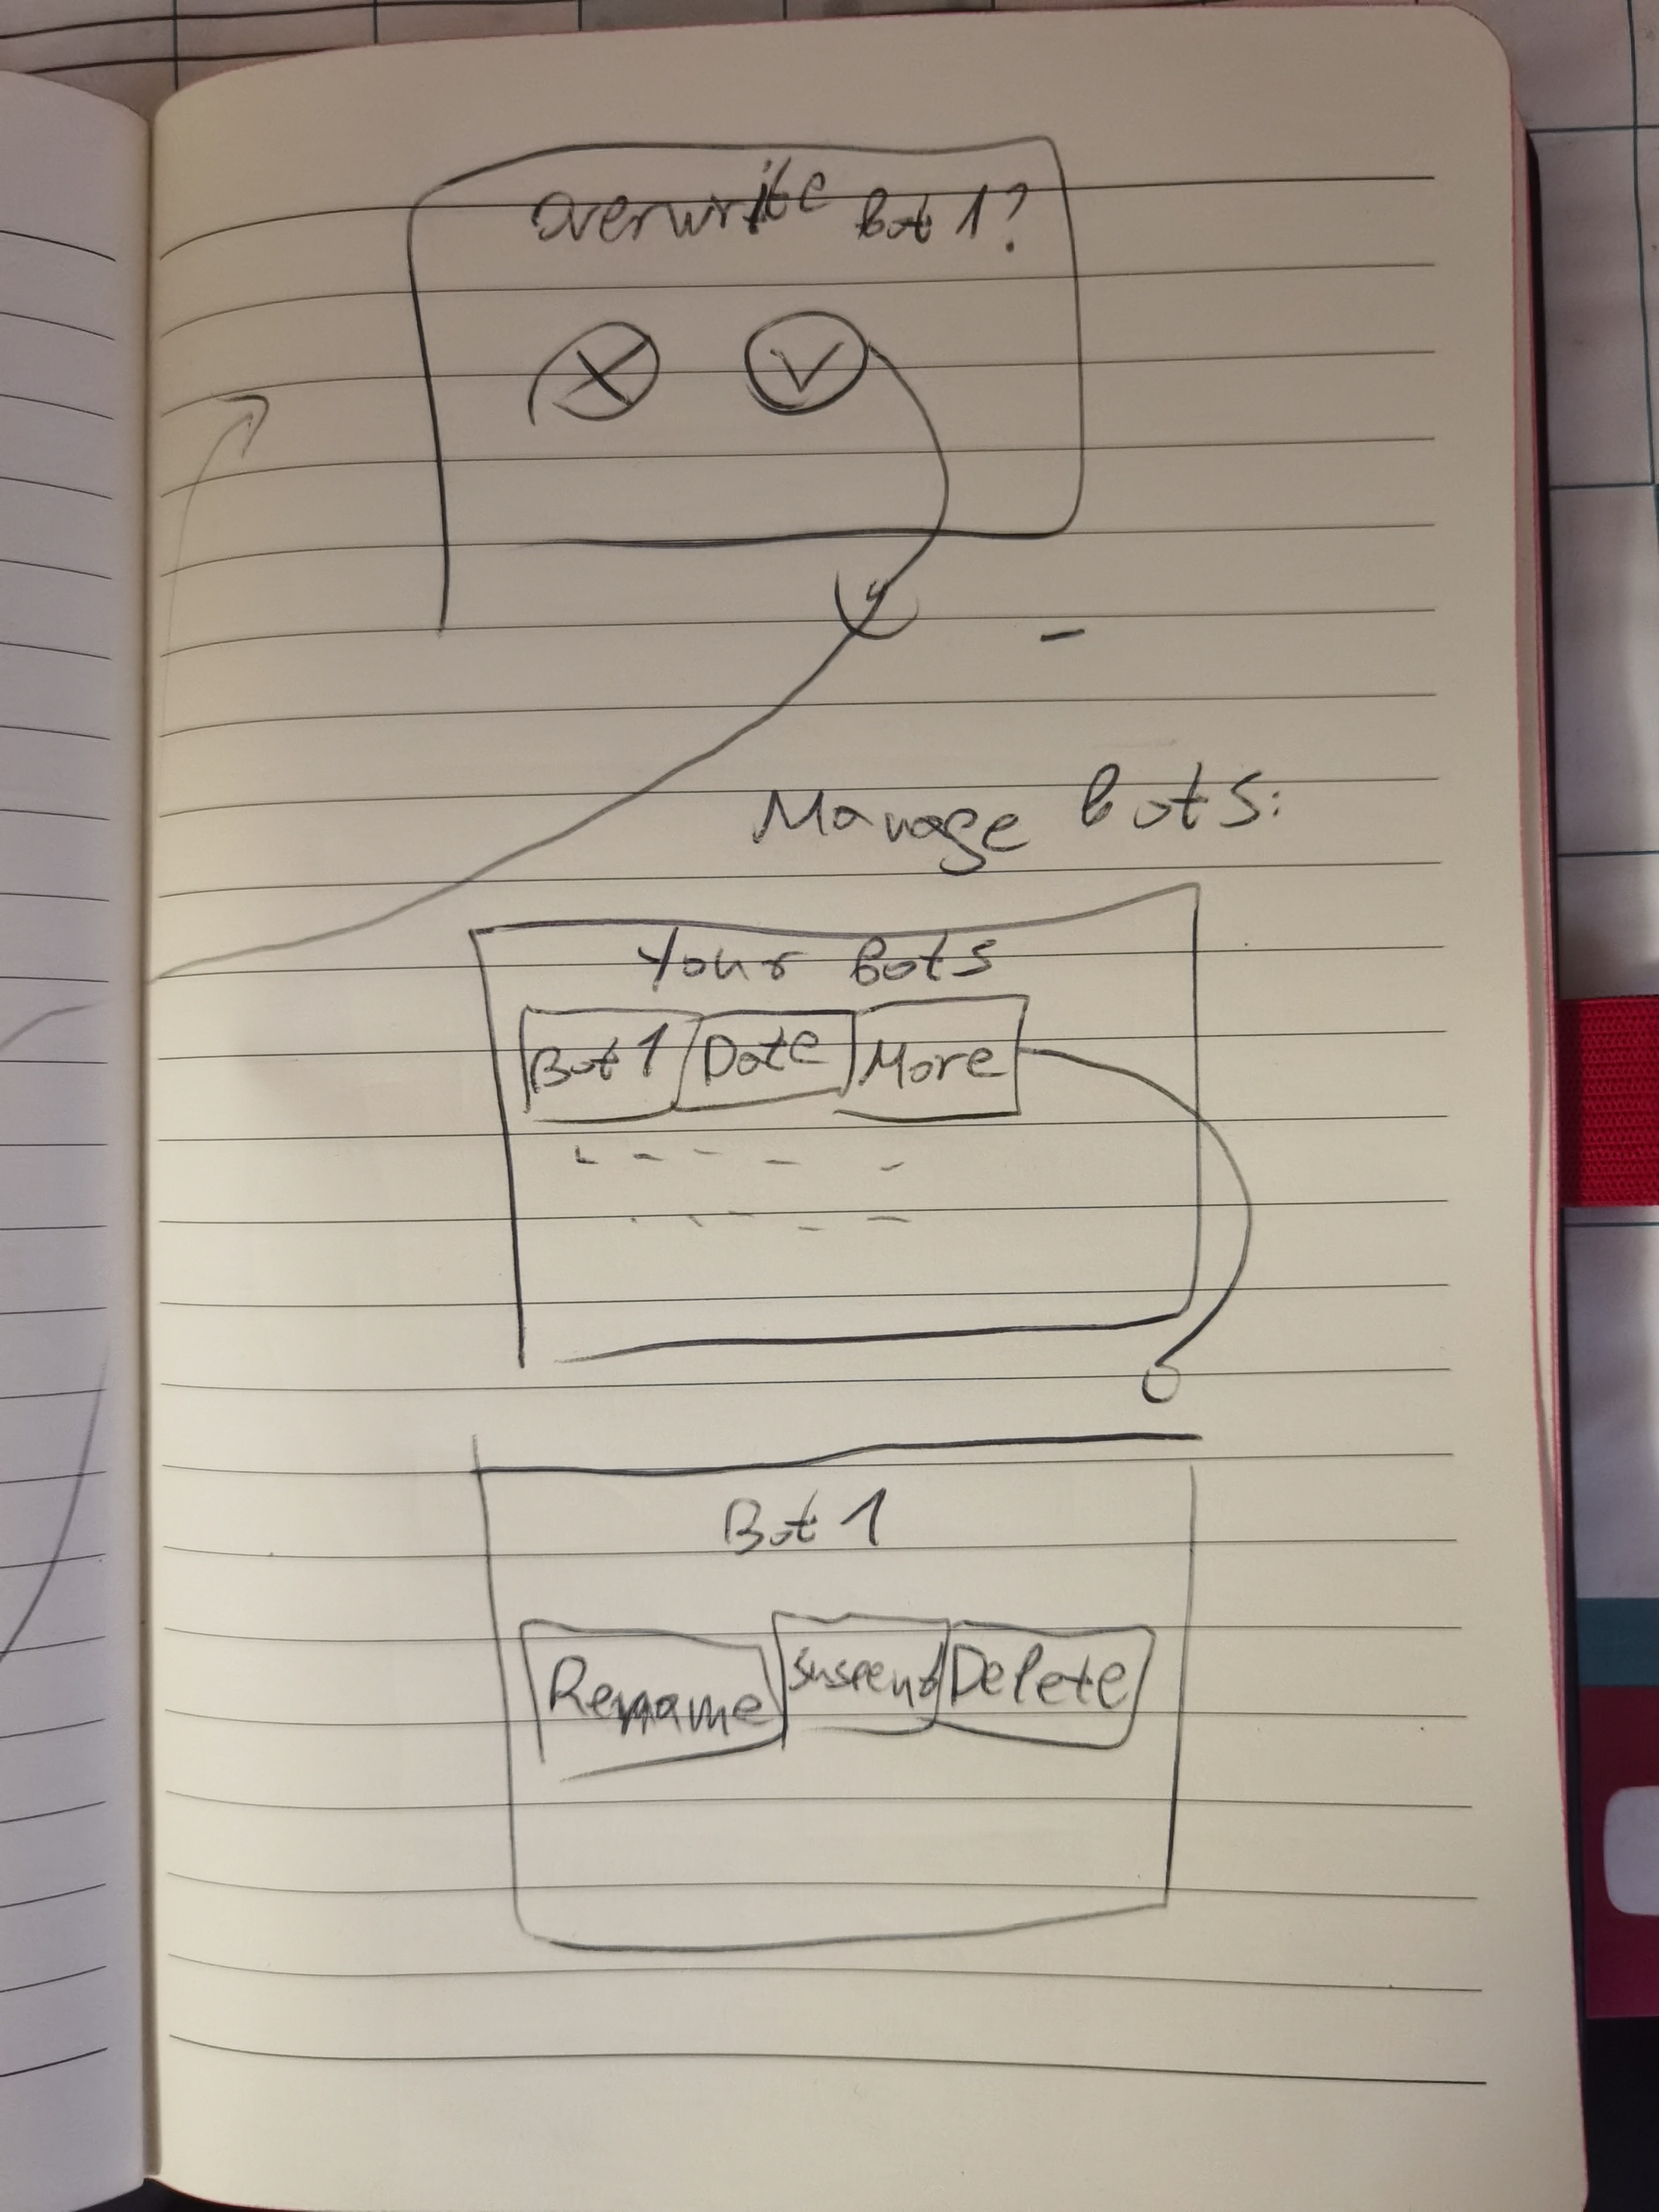 Overwrite Bot 1?
X V
Manage Bots:
Your Bots
Bot 1 Date More
Bot 1
Rename Suspend Delete